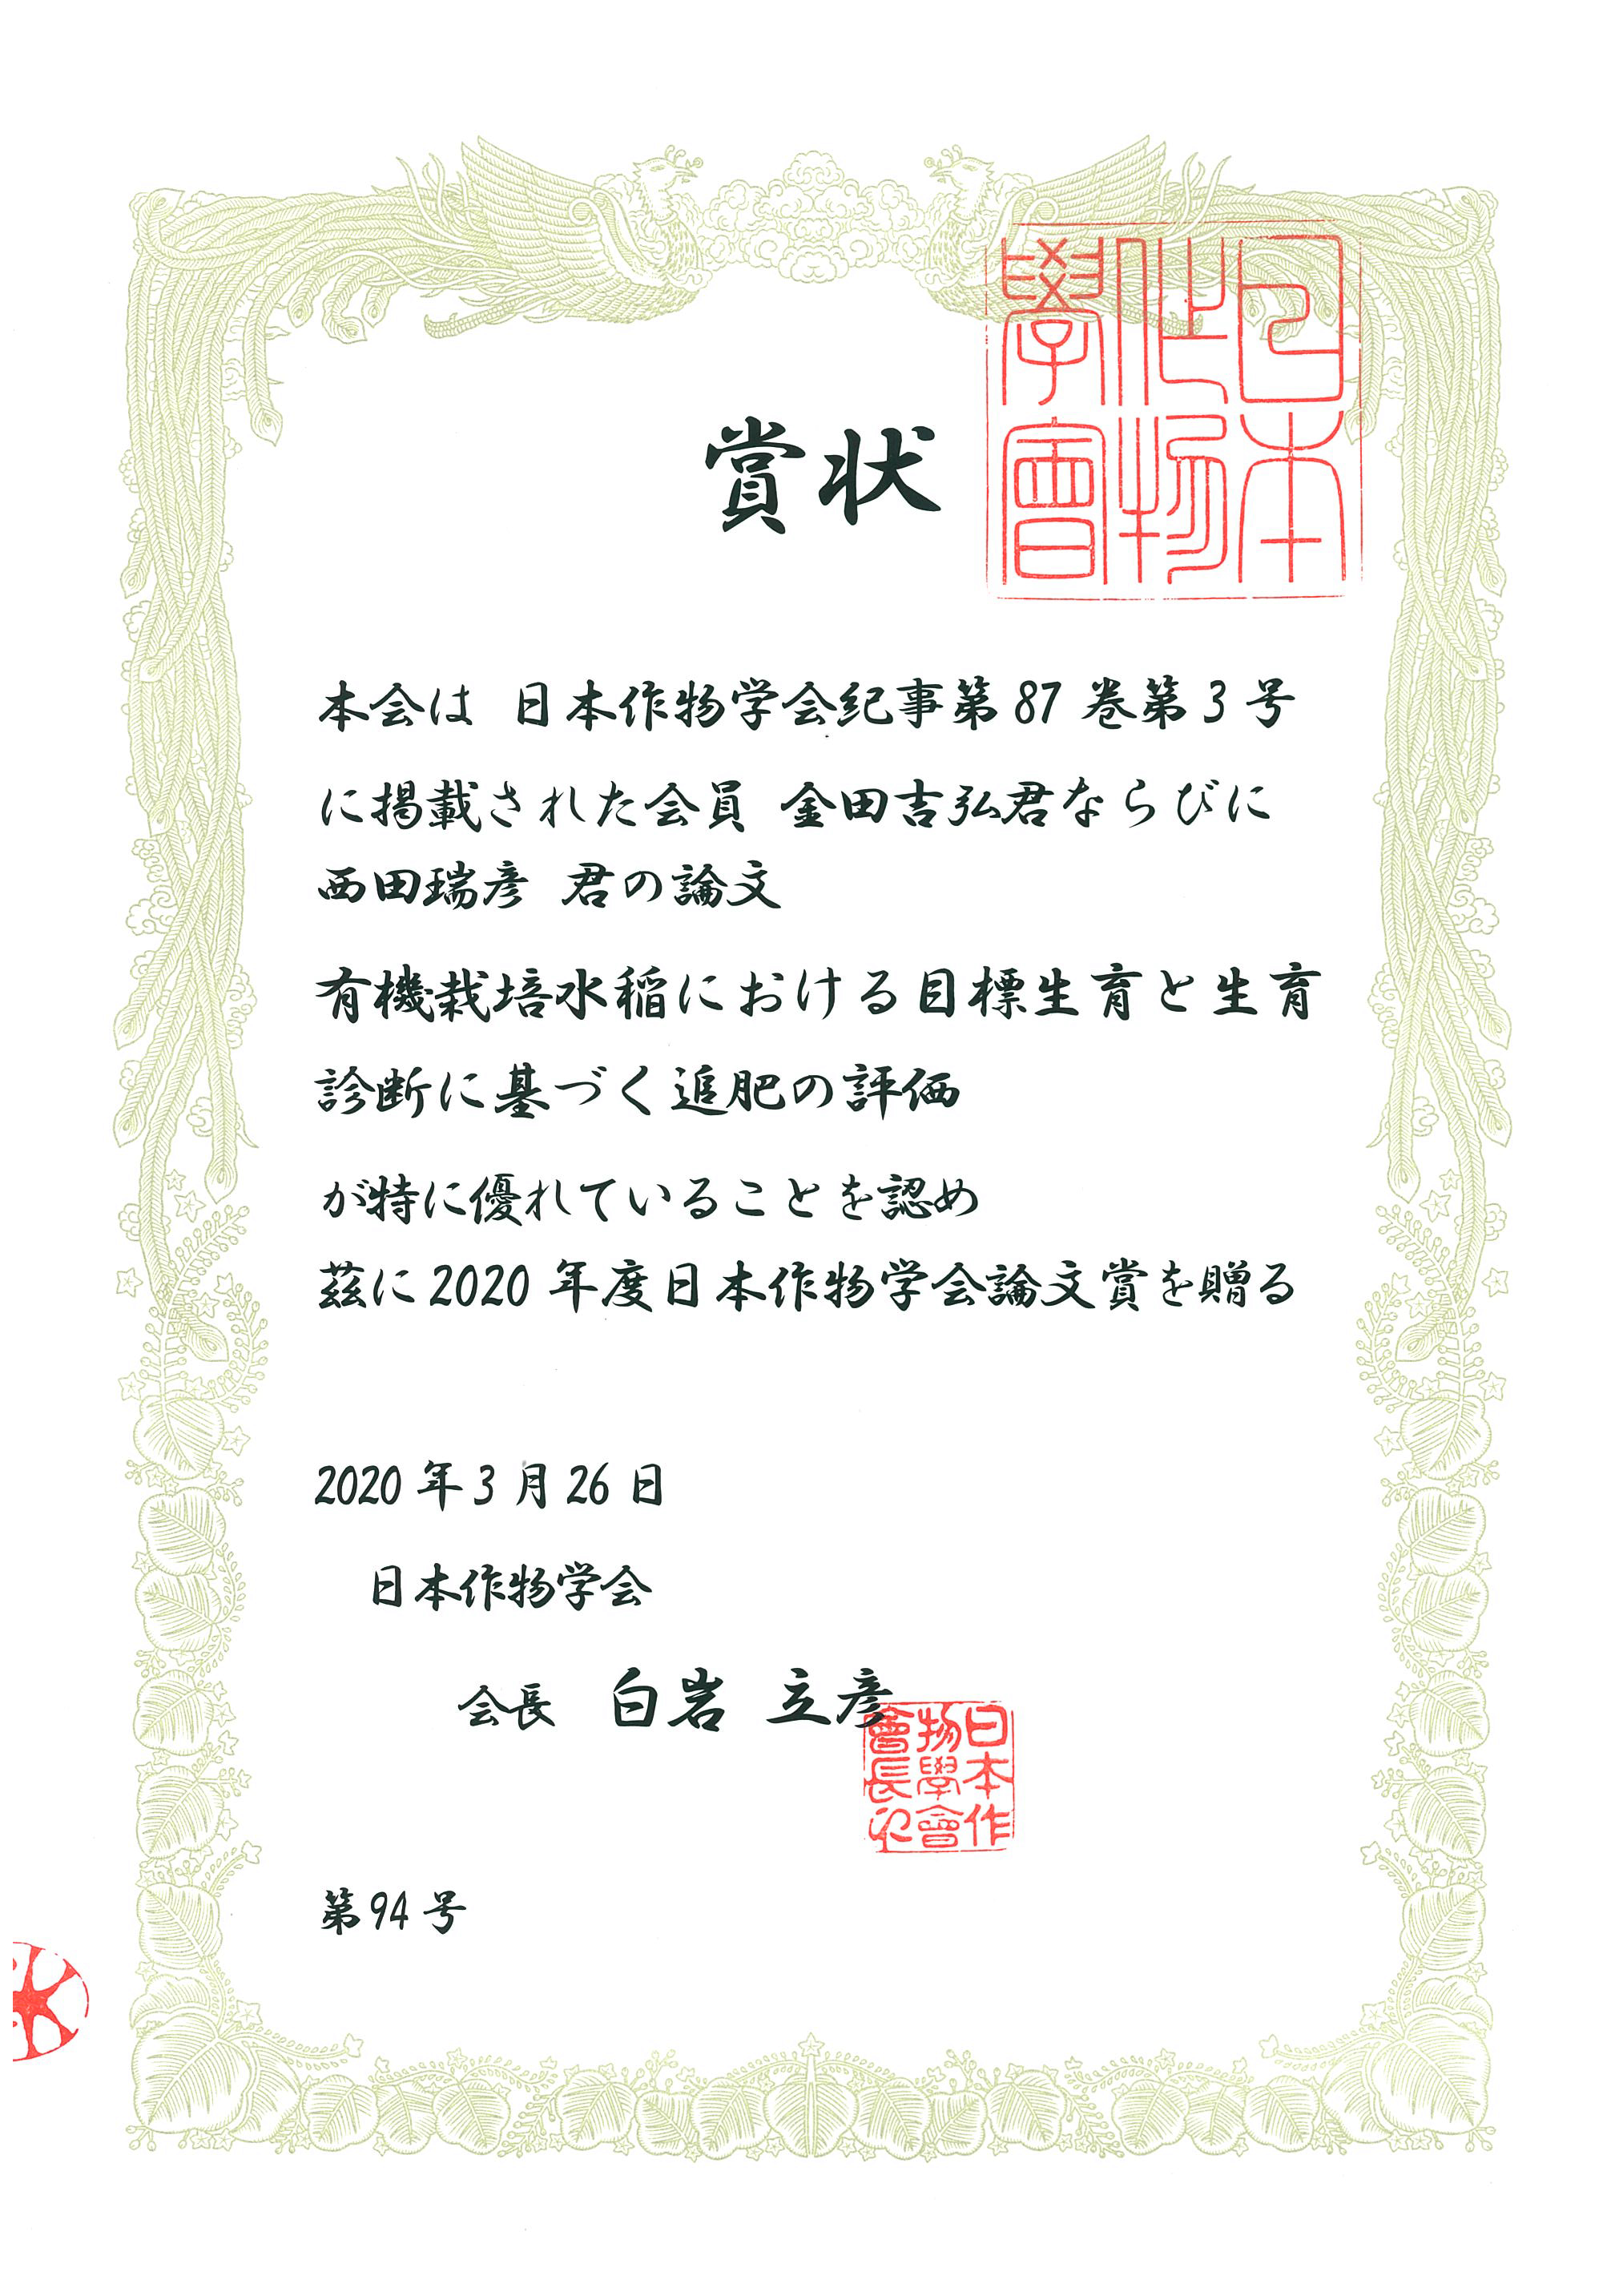 賞状
日本作物學會
本会は 日本作物学会紀事第 87 巻第 3 号
に掲載された会員 金田吉弘君ならびに
西田瑞彦 君の論文
有機栽培水稲における目標生育と生育
診断に基づく追肥の評価
が特に優れていることを認め
茲に 2020 年度日本作物学会論文賞を贈る
2020 年 3 月 26 日
日本作物学会
会長 白岩 立彦
日本作物學會會長之
第 94 号